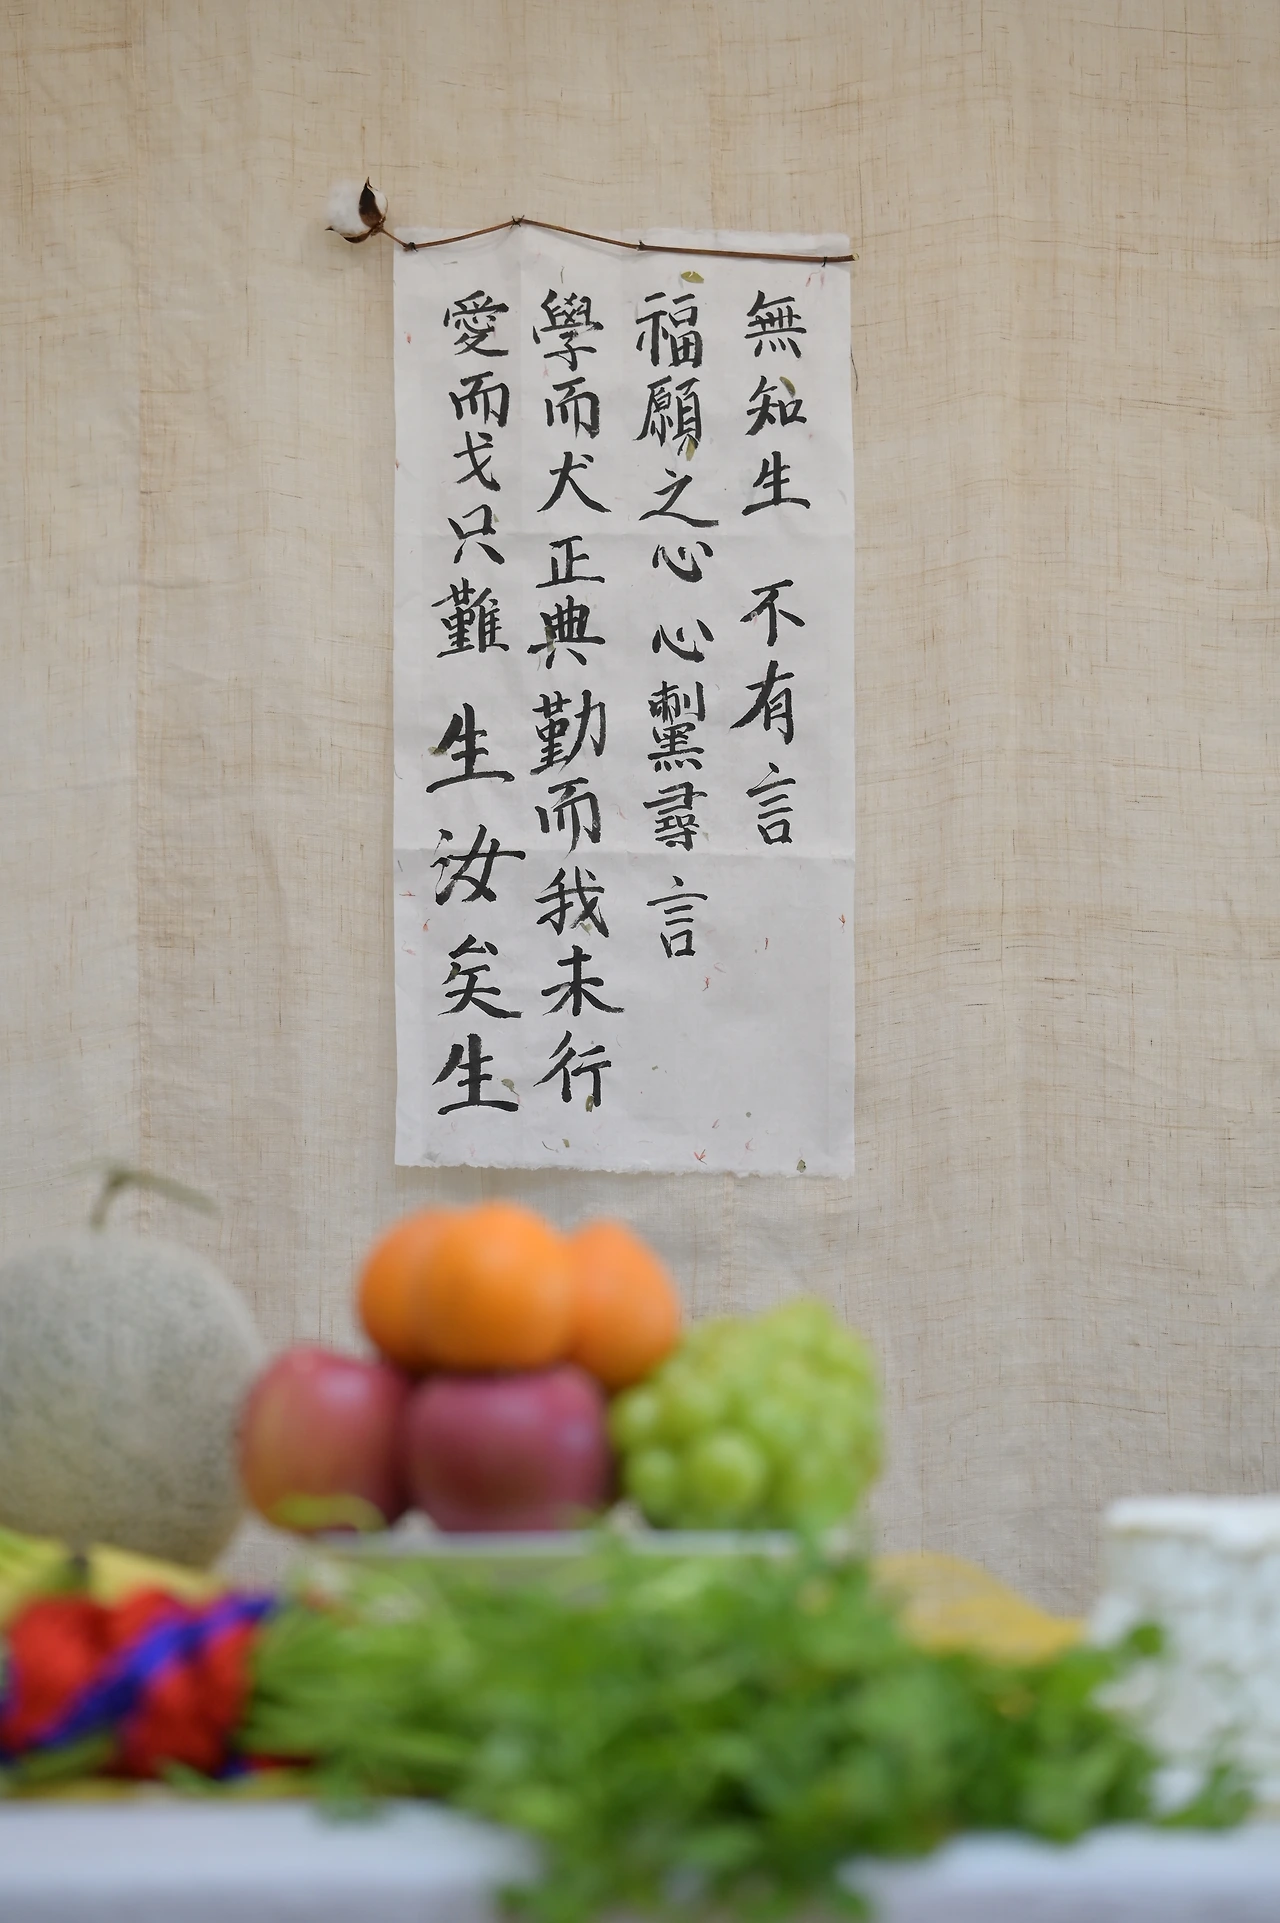 無知生 不有言
福願之心 心黧尋 言
學而犬正典勤而我未行
愛而戈只難 生汝矣生